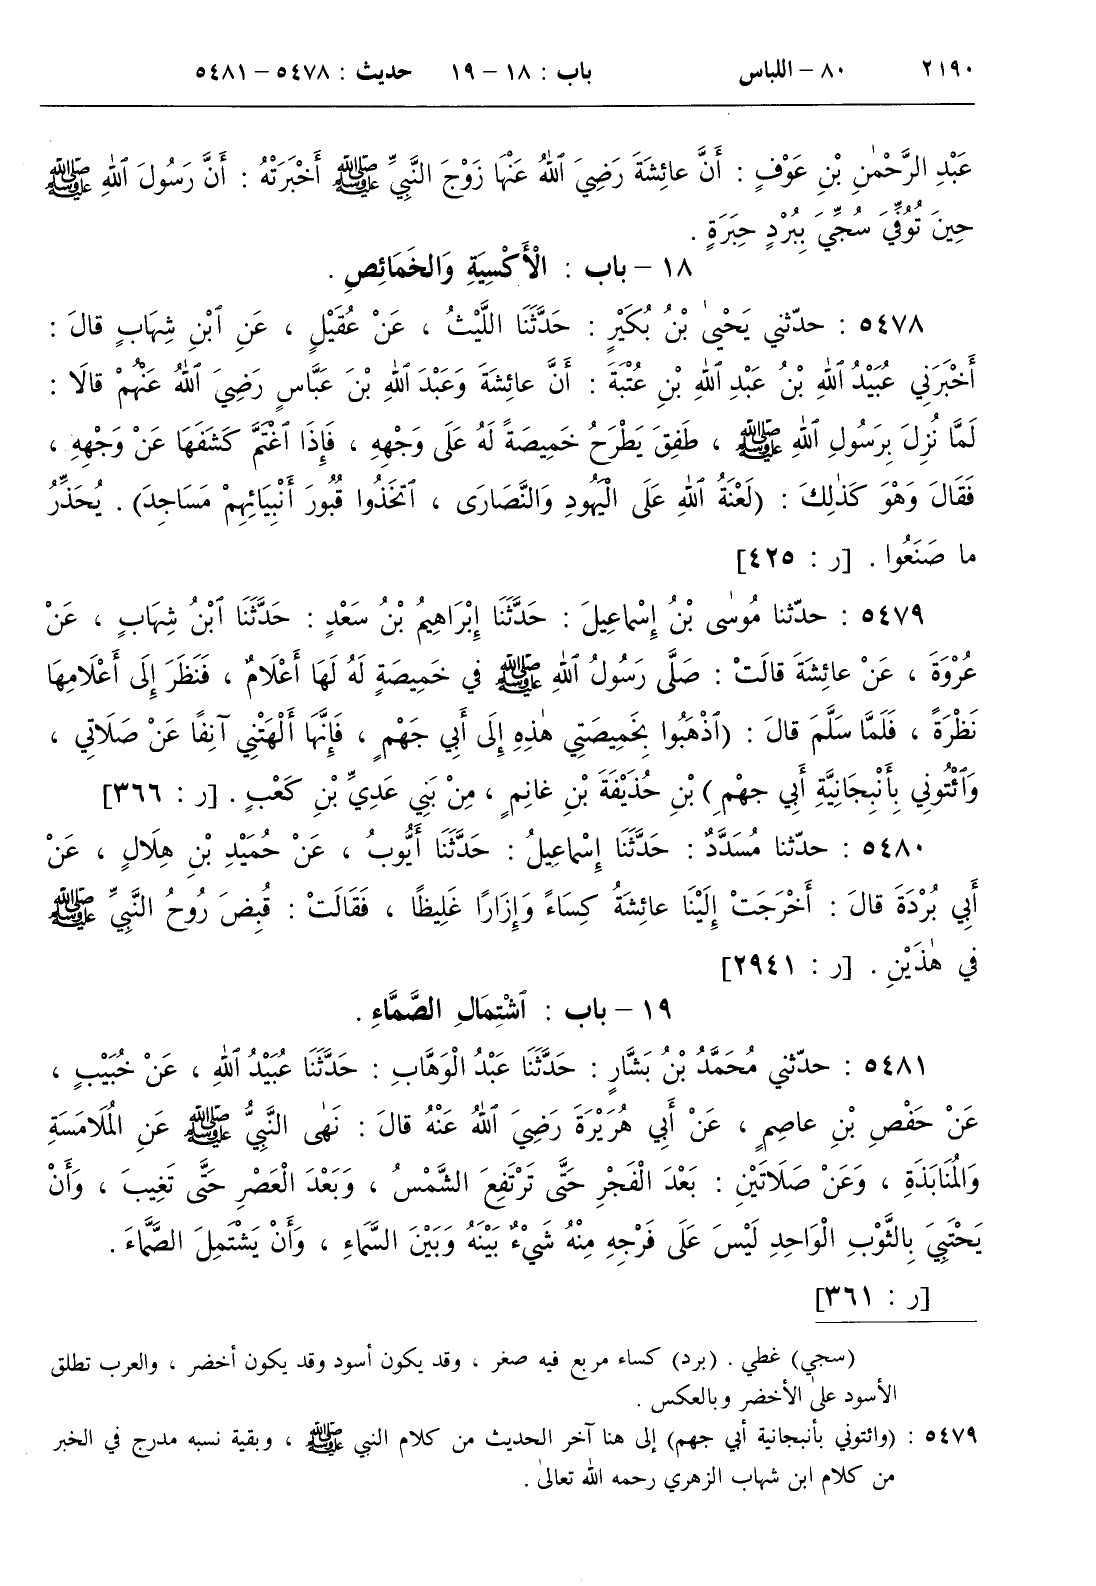 ٢١٩٠ ٨٠ - اللباس باب : ١٨ - ١٩ حديث : ٥٤٧٨ - ٥٤٨١
عَبْدِ الرَّحْمٰنِ بْنِ عَوْفٍ : أَنَّ عائِشَةَ رَضِيَ ٱللهُ عَنْهَا زَوْجَ النَّبِيِّ ﷺ أَخْبَرَتْهُ : أَنَّ رَسُولَ ٱللهِ ﷺ
حِينَ تُوُفِّيَ سُجِّيَ بِبُرْدٍ حِبَرَةٍ .
١٨ - باب : الْأَكْسِيَةِ وَالخَمَائِصِ .
٥٤٧٨ : حدّثني يَحْيىٰ بْنُ بُكَيْرٍ : حَدَّثَنَا اللَّيْثُ ، عَنْ عُقَيْلٍ ، عَنِ ٱبْنِ شِهَابٍ قالَ :
أَخْبَرَنِي عُبَيْدُ ٱللهِ بْنُ عَبْدِ ٱللهِ بْنِ عُتْبَةَ : أَنَّ عائِشَةَ وَعَبْدَ ٱللهِ بْنَ عَبَّاسٍ رَضِيَ ٱللهُ عَنْهُمْ قالَا :
لَمَّا نُزِلَ بِرَسُولِ ٱللهِ ﷺ ، طَفِقَ يَطْرَحُ خَمِيصَةً لَهُ عَلَى وَجْهِهِ ، فَإِذَا ٱغْتَمَّ كَشَفَهَا عَنْ وَجْهِهِ ،
فَقَالَ وَهْوَ كَذٰلِكَ : (لَعْنَةُ ٱللهِ عَلَى الْيَهُودِ وَالنَّصَارَى ، ٱتَّخَذُوا قُبُورَ أَنْبِيَائِهِمْ مَسَاجِدَ) . يُحَذِّرُ
ما صَنَعُوا . [ر : ٤٢٥]
٥٤٧٩ : حدّثنا مُوسٰى بْنُ إِسْماعِيلَ : حَدَّثَنَا إِبْرَاهِيمُ بْنُ سَعْدٍ : حَدَّثَنَا ٱبْنُ شِهَابٍ ، عَنْ
عُرْوَةَ ، عَنْ عائِشَةَ قالَتْ : صَلَّى رَسُولُ ٱللهِ ﷺ في خَمِيصَةٍ لَهُ لَهَا أَعْلَامٌ ، فَنَظَرَ إِلَى أَعْلَامِهَا
نَظْرَةً ، فَلَمَّا سَلَّمَ قالَ : (ٱذْهَبُوا بِخَمِيصَتِي هٰذِهِ إِلَى أَبِي جَهْمٍ ، فَإِنَّهَا أَلْهَتْنِي آنِفًا عَنْ صَلَاتِي ،
وَٱئْتُونِي بِأَنْبِجَانِيَّةِ أَبِي جهْمِ) بْنِ حُذَيْفَةَ بْنِ غانِمٍ ، مِنْ بَنِي عَدِيِّ بْنِ كَعْبٍ . [ر : ٣٦٦]
٥٤٨٠ : حدّثنا مُسَدَّدٌ : حَدَّثَنَا إِسْماعِيلُ : حَدَّثَنَا أَيُّوبُ ، عَنْ حُمَيْدِ بْنِ هِلَالٍ ، عَنْ
أَبِي بُرْدَةَ قالَ : أَخْرَجَتْ إِلَيْنَا عائِشَةُ كِسَاءً وَإِزَارًا غَلِيظًا ، فَقَالَتْ : قُبِضَ رُوحُ النَّبِيِّ ﷺ
في هٰذَيْنِ . [ر : ٢٩٤١]
١٩ - باب : ٱشْتِمَالِ الصَّمَّاءِ .
٥٤٨١ : حدّثني مُحَمَّدُ بْنُ بَشَّارٍ : حَدَّثَنَا عَبْدُ الْوَهَّابِ : حَدَّثَنَا عُبَيْدُ ٱللهِ ، عَنْ خُبَيْبٍ ،
عَنْ حَفْصِ بْنِ عاصِمٍ ، عَنْ أَبِي هُرَيْرَةَ رَضِيَ ٱللهُ عَنْهُ قالَ : نَهٰى النَّبِيُّ ﷺ عَنِ المُلَامَسَةِ
وَالمُنَابَذَةِ ، وَعَنْ صَلَاتَيْنِ : بَعْدَ الْفَجْرِ حَتَّى تَرْتَفِعَ الشَّمْسُ ، وَبَعْدَ الْعَصْرِ حَتَّى تَغِيبَ ، وَأَنْ
يَحْتَبِيَ بِالثَّوْبِ الْوَاحِدِ لَيْسَ عَلَى فَرْجِهِ مِنْهُ شَيْءٌ بَيْنَهُ وَبَيْنَ السَّمَاءِ ، وَأَنْ يَشْتَمِلَ الصَّمَّاءَ .
[ر : ٣٦١]
(سجي) غطي . (برد) كساء مربع فيه صغر ، وقد يكون أسود وقد يكون أخضر ، والعرب تطلق
الأسود على الأخضر وبالعكس .
٥٤٧٩ : (وائتوني بأنبجانية أبي جهم) إلى هنا آخر الحديث من كلام النبي ﷺ ، وبقية نسبه مدرج في الخبر
من كلام ابن شهاب الزهري رحمه الله تعالىٰ .